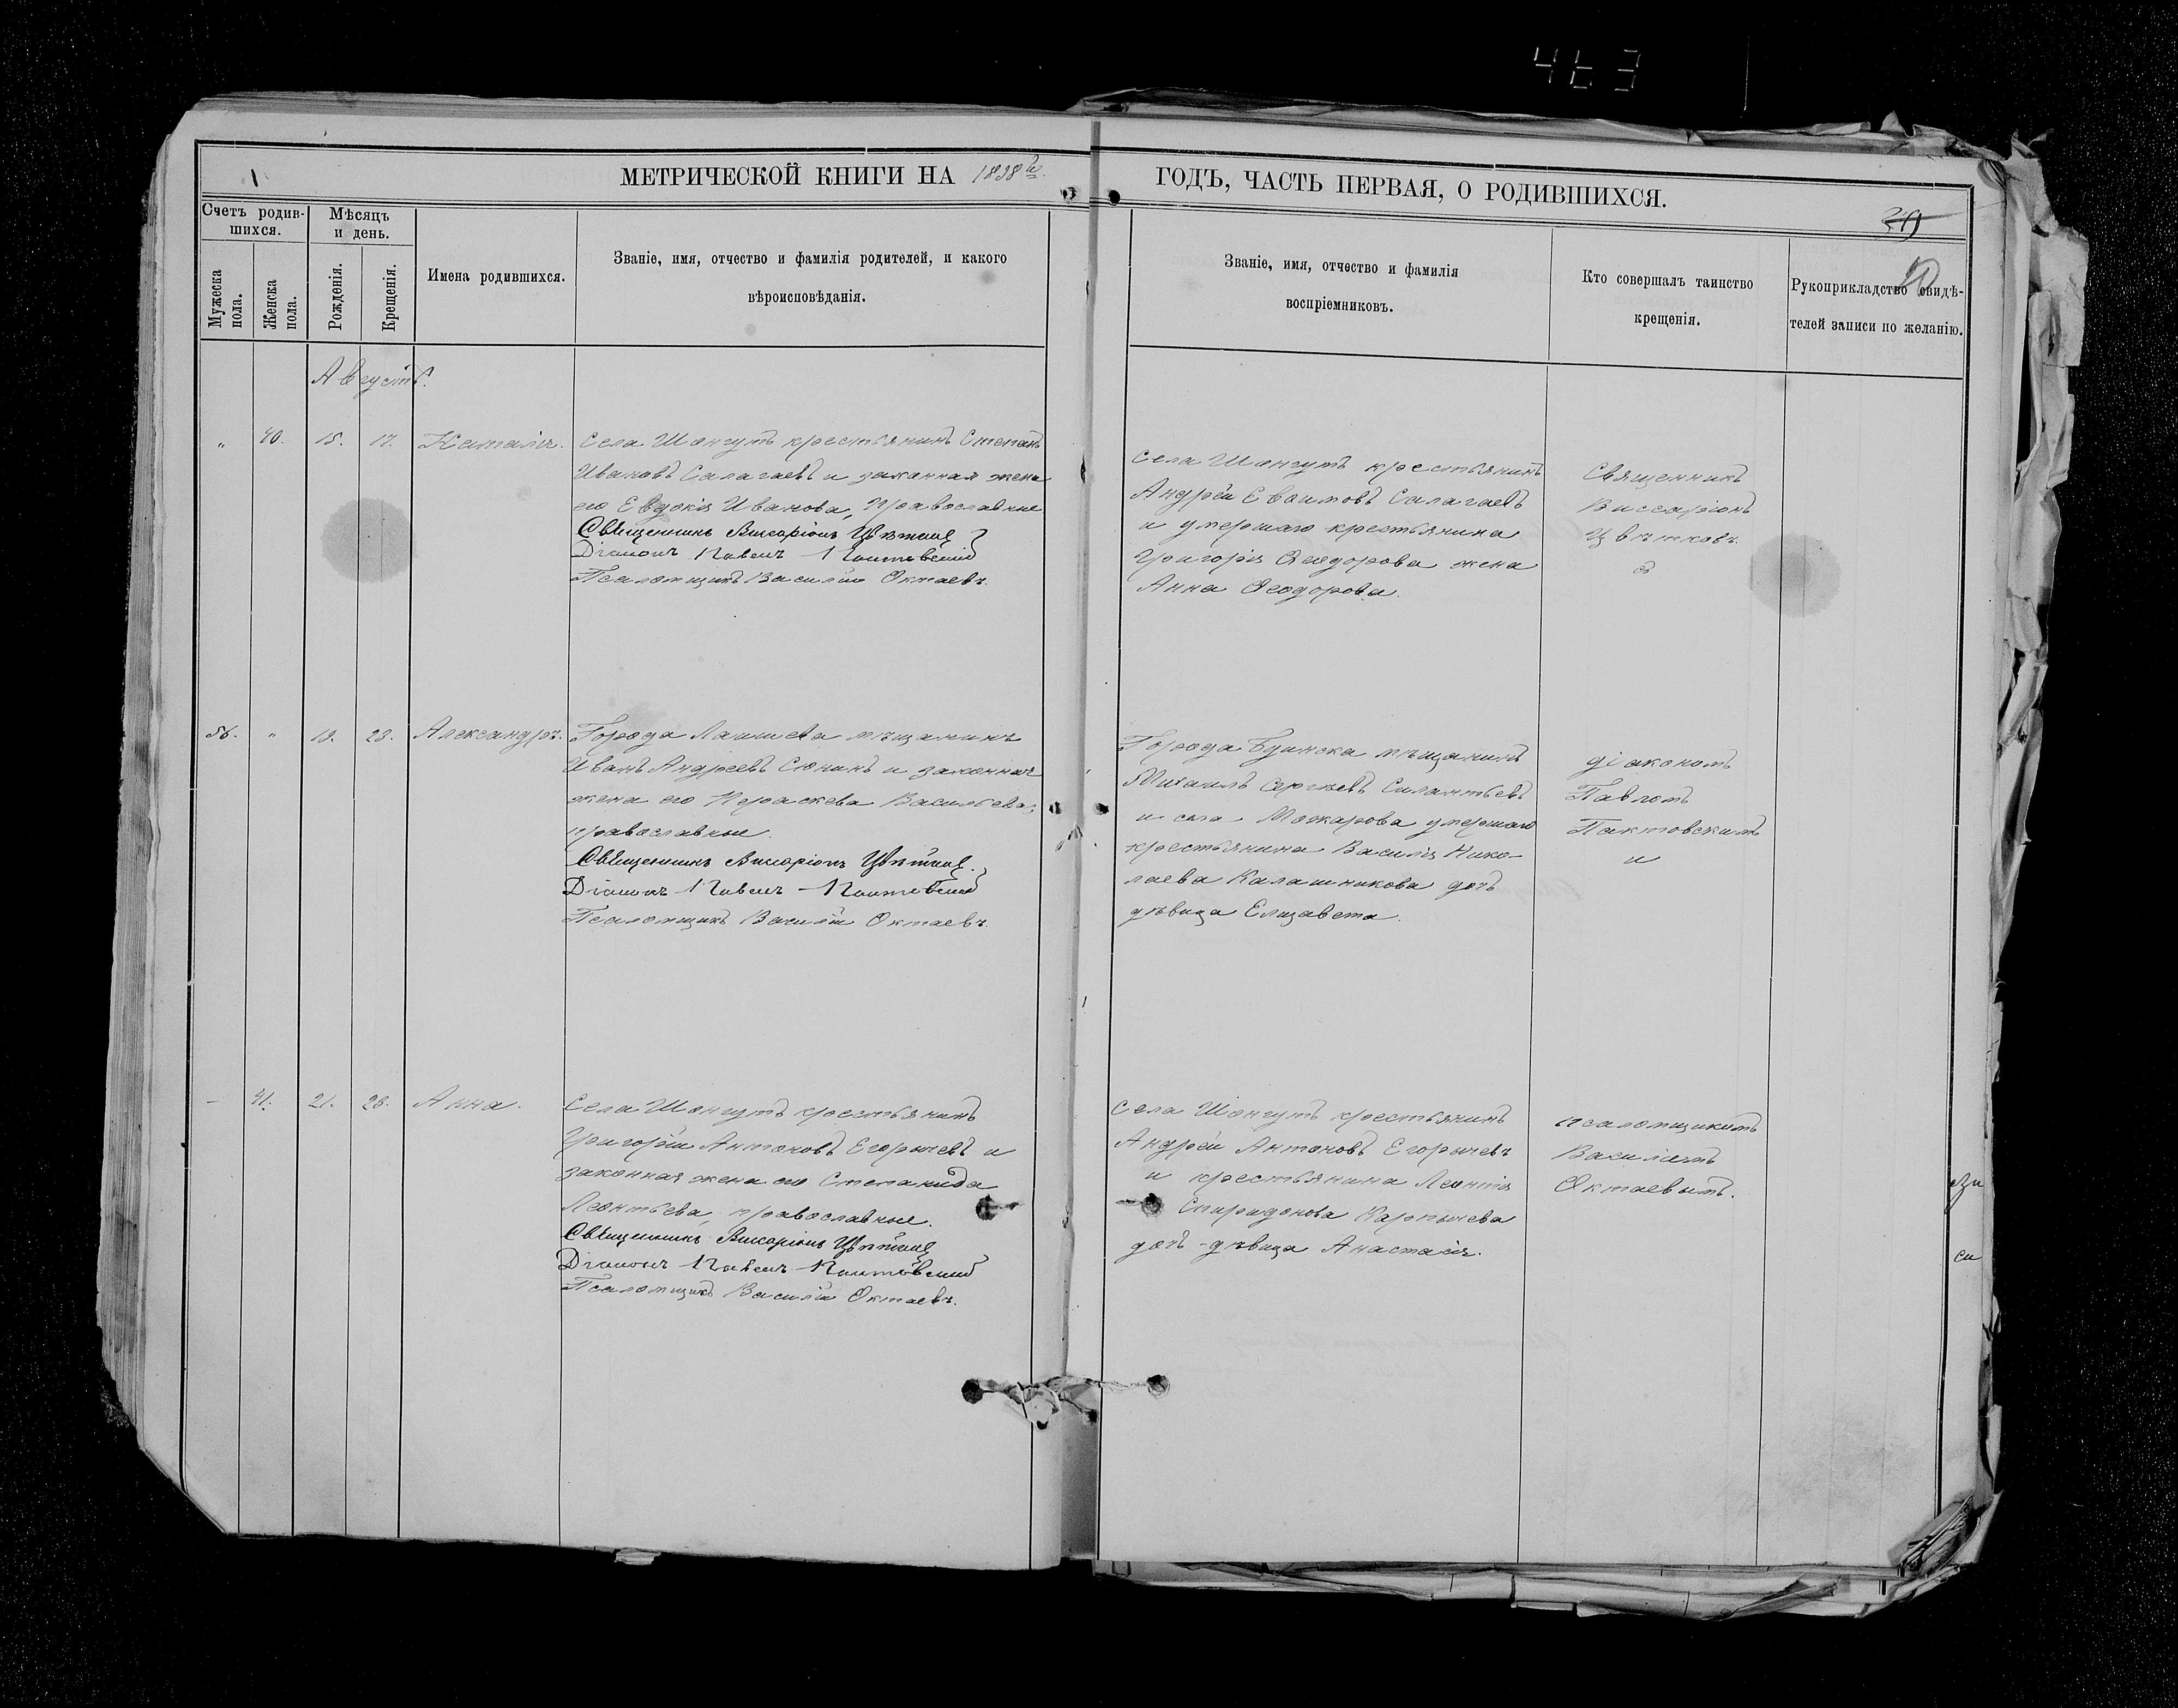 МЕТРИЧЕСКОЙ КНИГИ НА 1898 й.
ГОДЪ, ЧАСТЬ ПЕРВАЯ, О РОДИВШИХСЯ.
Счетъ родив-
шихся.
Мѣсяцъ
и день.
Мужеска
пола.
Женска
пола.
Рожденія.
Крещенія.
Имена родившихся.
Званіе, имя, отчество и фамилія родителей, и какого
вѣроисповѣданія.
Званіе, имя, отчество и фамилія
воспріемниковъ.
Кто совершалъ таинство
крещенія.
Рукоприкладство свидѣ-
телей записи по желанію.
Августъ.
" 40. 15. 17. Наталія.
Села Шонгутъ крестьянинъ Степанъ
Ивановъ Салагаевъ и законная жена
его Евдокія Иванова, православные
Священникъ Виссаріонъ Цвѣтковъ
Діаконъ Павелъ Пактовскій
Псаломщикъ Василій Октаевъ.
Села Шонгутъ крестьянинъ
Андрей Евфимовъ Салагаевъ
и умершаго крестьянина
Григорія Ѳеодорова жена
Анна Ѳеодорова.
Священникъ
Виссаріонъ
Цвѣтковъ
съ
56. " 19. 23. Александръ.
Города Лаишева мѣщанинъ
Иванъ Андреевъ Сюнинъ и законная
жена его Параскева Васильева;
православные.
Священникъ Виссаріонъ Цвѣтковъ.
Діаконъ Павелъ Пактовскій
Псаломщикъ Василій Октаевъ.
Города Буинска мѣщанинъ
Михаилъ Сергѣевъ Силантьевъ
и села Можарова умершаго
крестьянина Василія Нико-
лаева Калашникова дочь
дѣвица Елизавета.
діакономъ
Павломъ
Пактовскимъ
и
- 41. 21. 23. Анна.
Села Шонгутъ крестьянинъ
Григорій Антоновъ Егорычевъ и
законная жена его Степанида
Леонтьева, православные.
Священникъ Виссаріонъ Цвѣтковъ
Діаконъ Павелъ Пактовскій
Псаломщикъ Василій Октаевъ.
Села Шонгутъ крестьянинъ
Андрей Антоновъ Егорычевъ
и крестьянина Леонтія
Спиридонова Карпычева
дочь-дѣвица Анастасія.
псаломщикомъ
Василіемъ
Октаевымъ.